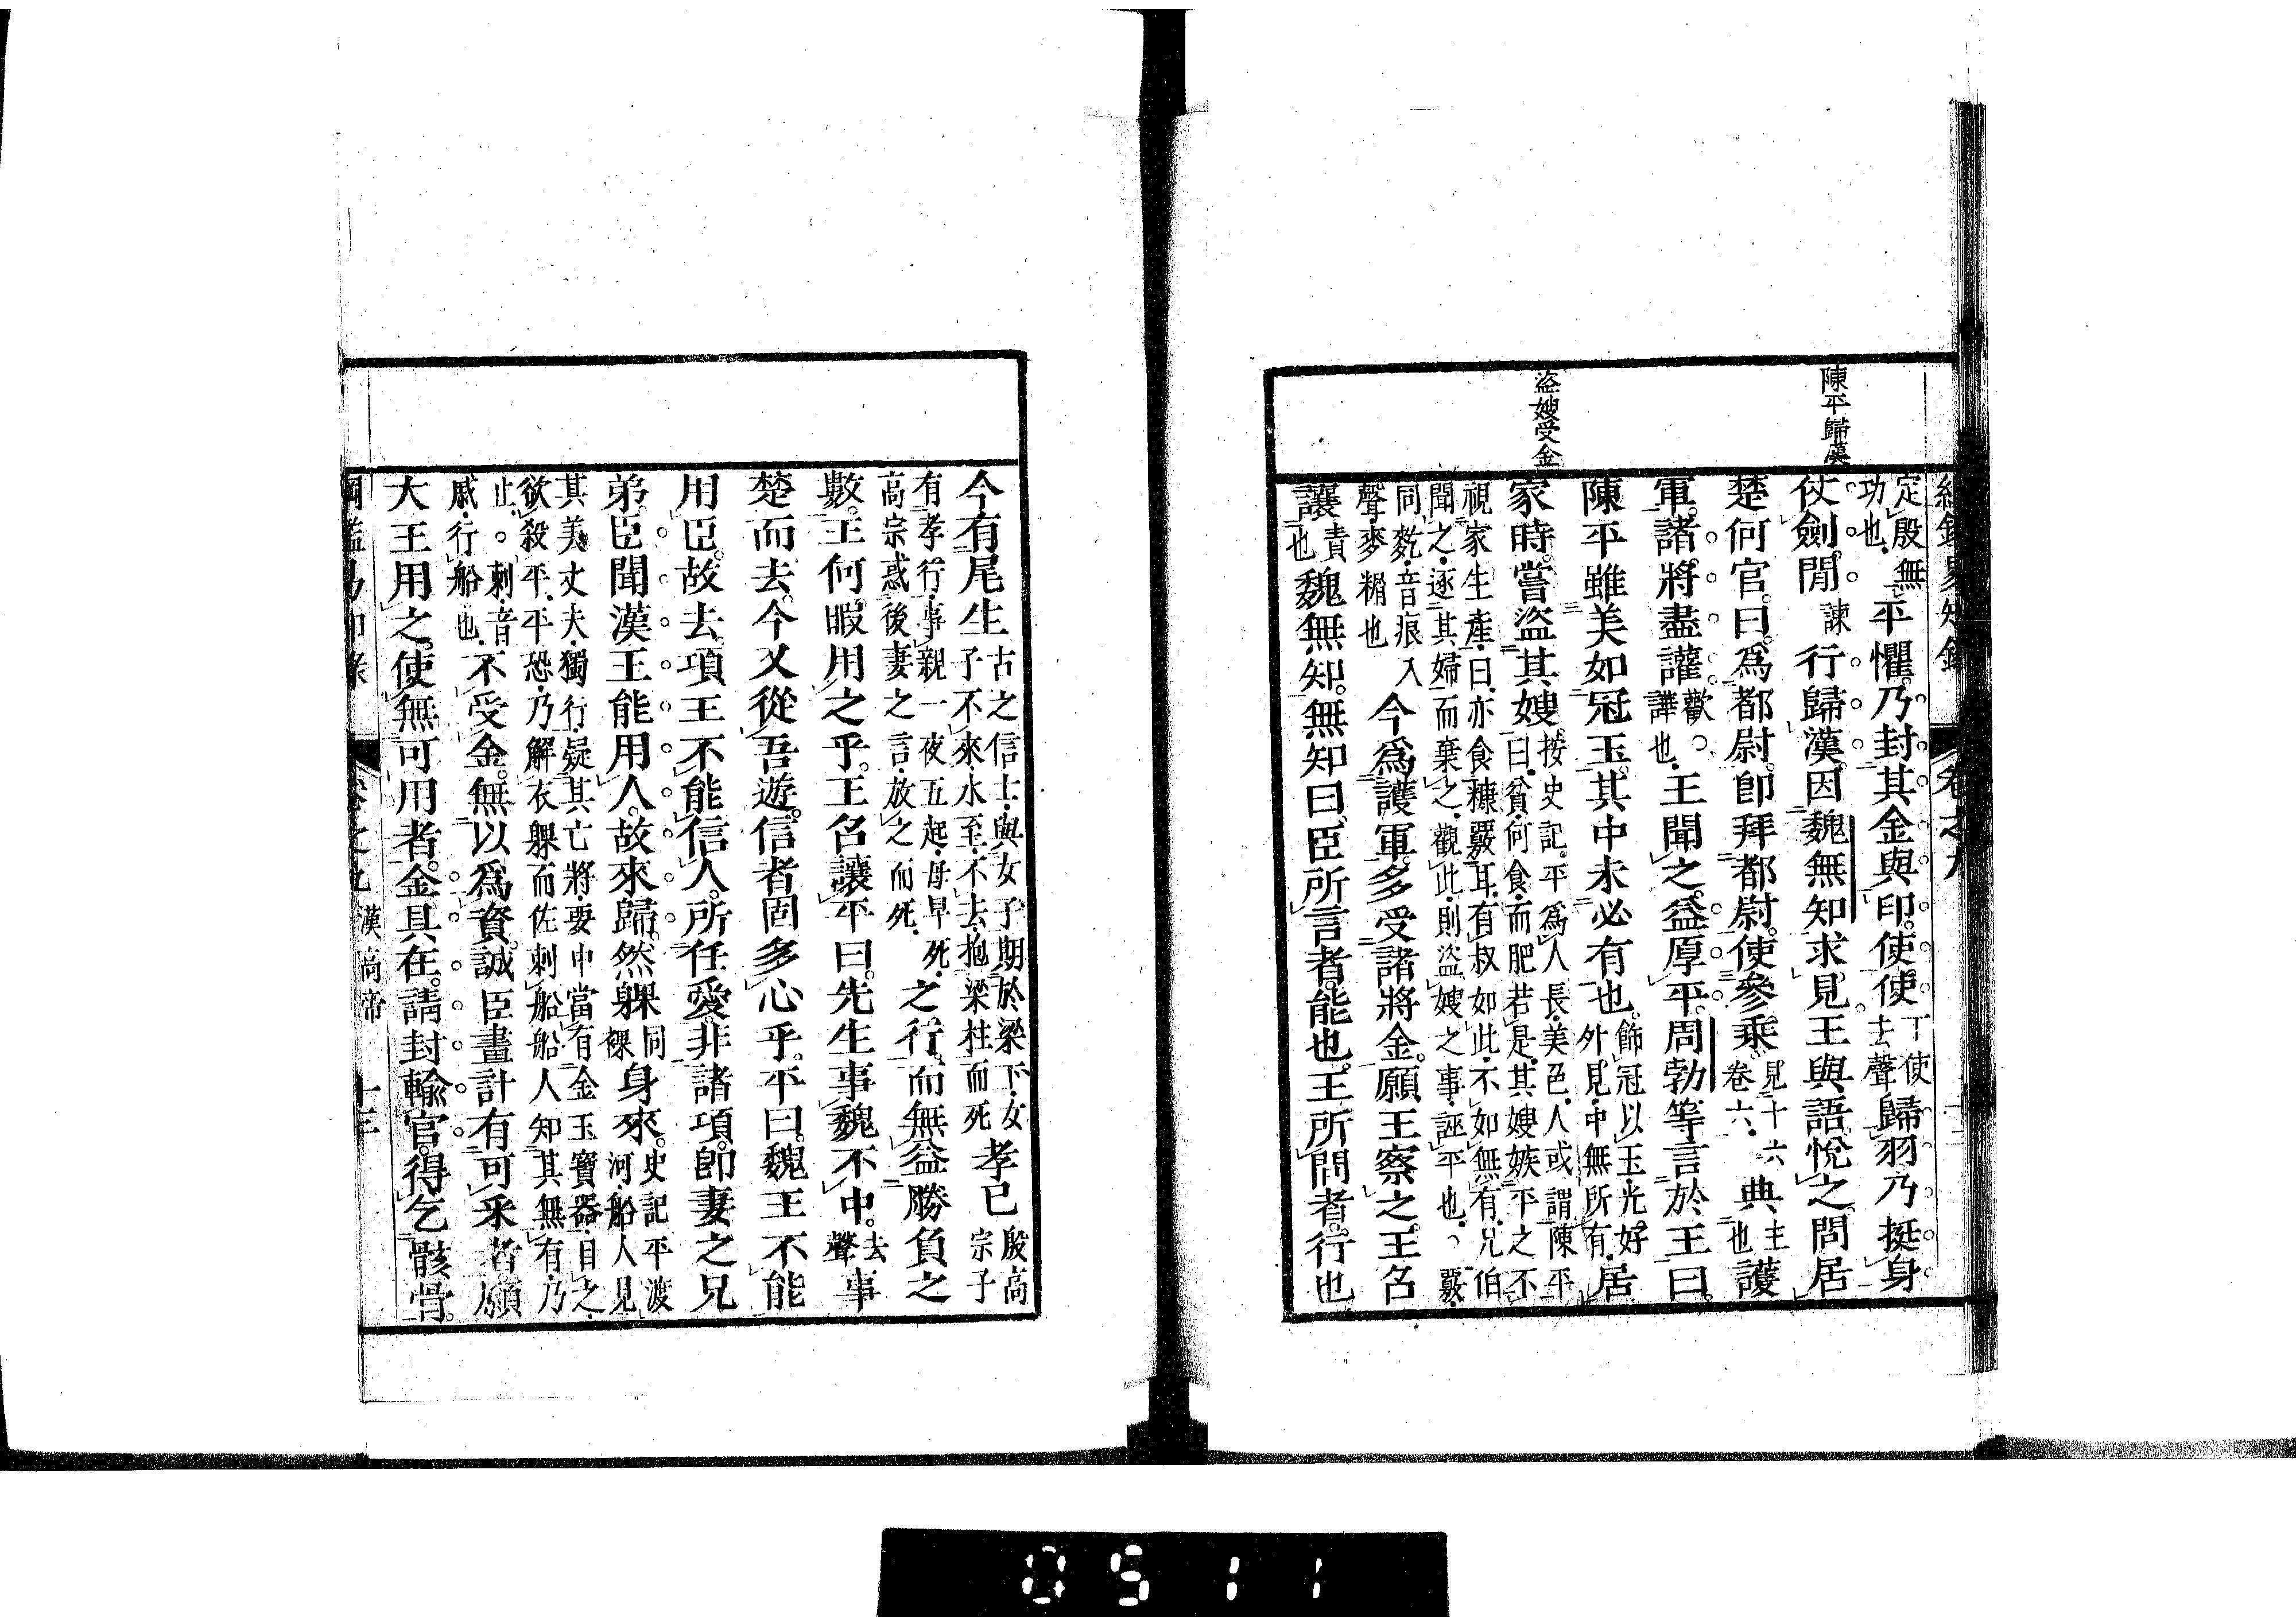 陳平歸漢
盜嫂受金
卷之九
定殷無
功也
平懼乃封其金與印使使
丁使
去聲
歸羽乃挺身
仗劍閒
諫
行歸漢因魏無知求見王與語悅之問居
楚何官曰為都尉卽拜都尉使參乘
見十六
卷六
典
主
也
護
軍諸將盡讙
歡
譁也
王聞之益厚平周勃等言於王曰
陳平雖美如冠玉其中未必有也
飾冠以玉光好
外見中無所有
居
家時嘗盜其嫂
按史記平為人長美色人或謂陳平
曰貧何食而肥若是其嫂嫉平之不
視家生產曰亦食糠覈耳有叔如此不如無有兄伯
聞之逐其婦而棄之觀此則盜嫂之事誣平也覈
同麧音痕入
聲麥糏也
今為護軍多受諸將金願王察之王召
讓
責
也
魏無知無知曰臣所言者能也王所問者行也
今有尾生
古之信士與女子期於梁下女
子不來水至不去抱梁柱而死
孝已
殷高
宗子
有孝行事親一夜五起母早死
高宗惑後妻之言放之而死
之行而無益勝負之
數王何暇用之乎王召讓平曰先生事魏不中
去
聲
事
楚而去今又從吾遊信者固多心乎平曰魏王不能
用臣故去項王不能信人所任愛非諸項卽妻之兄
弟臣聞漢王能用人故來歸然躶
同
裸
身來
史記平渡
河船人見
其美丈夫獨行疑其亡將要中當有金玉寶器目之
欲殺平平恐乃解衣躶而佐刺船船人知其無有乃
止刺音
戚行船也
不受金無以為資誠臣畫計有可采者願
大王用之使無可用者金具在請封輸官得乞骸骨
綱鑑易知錄
卷之九
漢高帝
十三